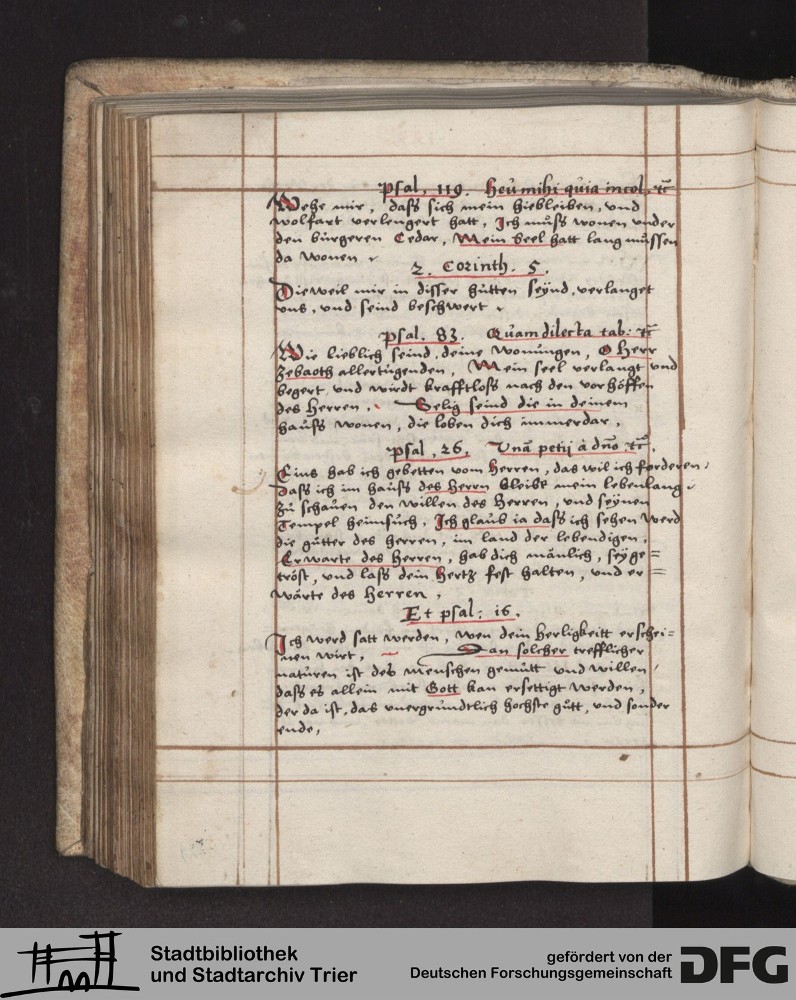 Psal. 119. Heu mihi quia incol. ꝛc̄
Wehe mir, dass sich mein hiebleiben, und
wolfart verlengert hatt, Ich muss wonen under
den bürgeren Cedar, Mein seel hatt lang müssen
da wonen.
2. Corinth. 5.
Dieweil mir in disser hütten seÿnd, verlanget
uns, und seind beschwert.
Psal. 83. Quam dilecta tab: ꝛc̄
Wie lieblich seind, deine wonungen, O Herr
Zebaoth allertugenden, Mein seel verlangt und
begert und wirdt krafftloss nach den vorhöffen
des Herren, Selig seind die in deinem
hauss wonen, die loben dich immerdar,
Psal, 26, Unā petij à dño. ꝛc̄.
Eins hab ich gebetten vom Herren, das wil ich forderen,
dass ich im hauss des Herrn bleibe mein lebenlang.
Zu schauen den willen des Herren, und seÿnen
Tempel heimsuch, Ich glaub ia dass ich sehen werd
die gütter des Herren, im land der lebendigen,
Erwarte des Herren, hab dich mänlich, seÿ ge=
tröst, und lass dein Hertz fest halten, und er=
wärte des Herren,
Et psal: 16.
Ich werd satt werden, wen dein Herligkeitt erschei=
nen wirt, Dan solcher trefflicher
naturen ist des menschen gemütt und willen,
dass es allein mit Gott kan ersettigt werden,
der da ist, das unergrundtlich hochste gutt, und sonder
ende,
Stadtbibliothek
und Stadtarchiv Trier
gefördert von der
Deutschen Forschungsgemeinschaft
DFG